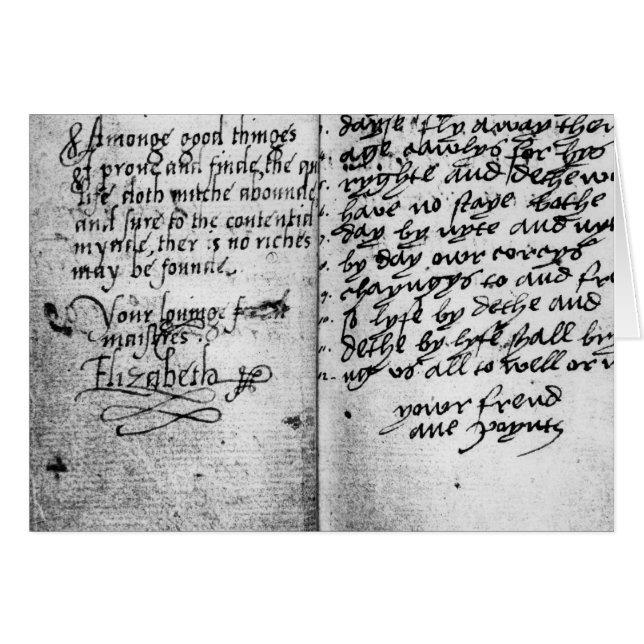 Amonge good thinges
I prove and finde, the
life doth mutche abounde
and sure to the contentid
mynde, ther is no riches
may be founde.
Your lovinge
maistres
Elizabeth
dayse fly away ther
age cawlys for hys
ryghte and dethe
have no staye bothe
day by nyte and nyt
by day owr corcys
chayngys to and fro
so lyfe by dethe and
dethe by lyfe shall bry
ng us all to well or
yowr frend
ane poynts